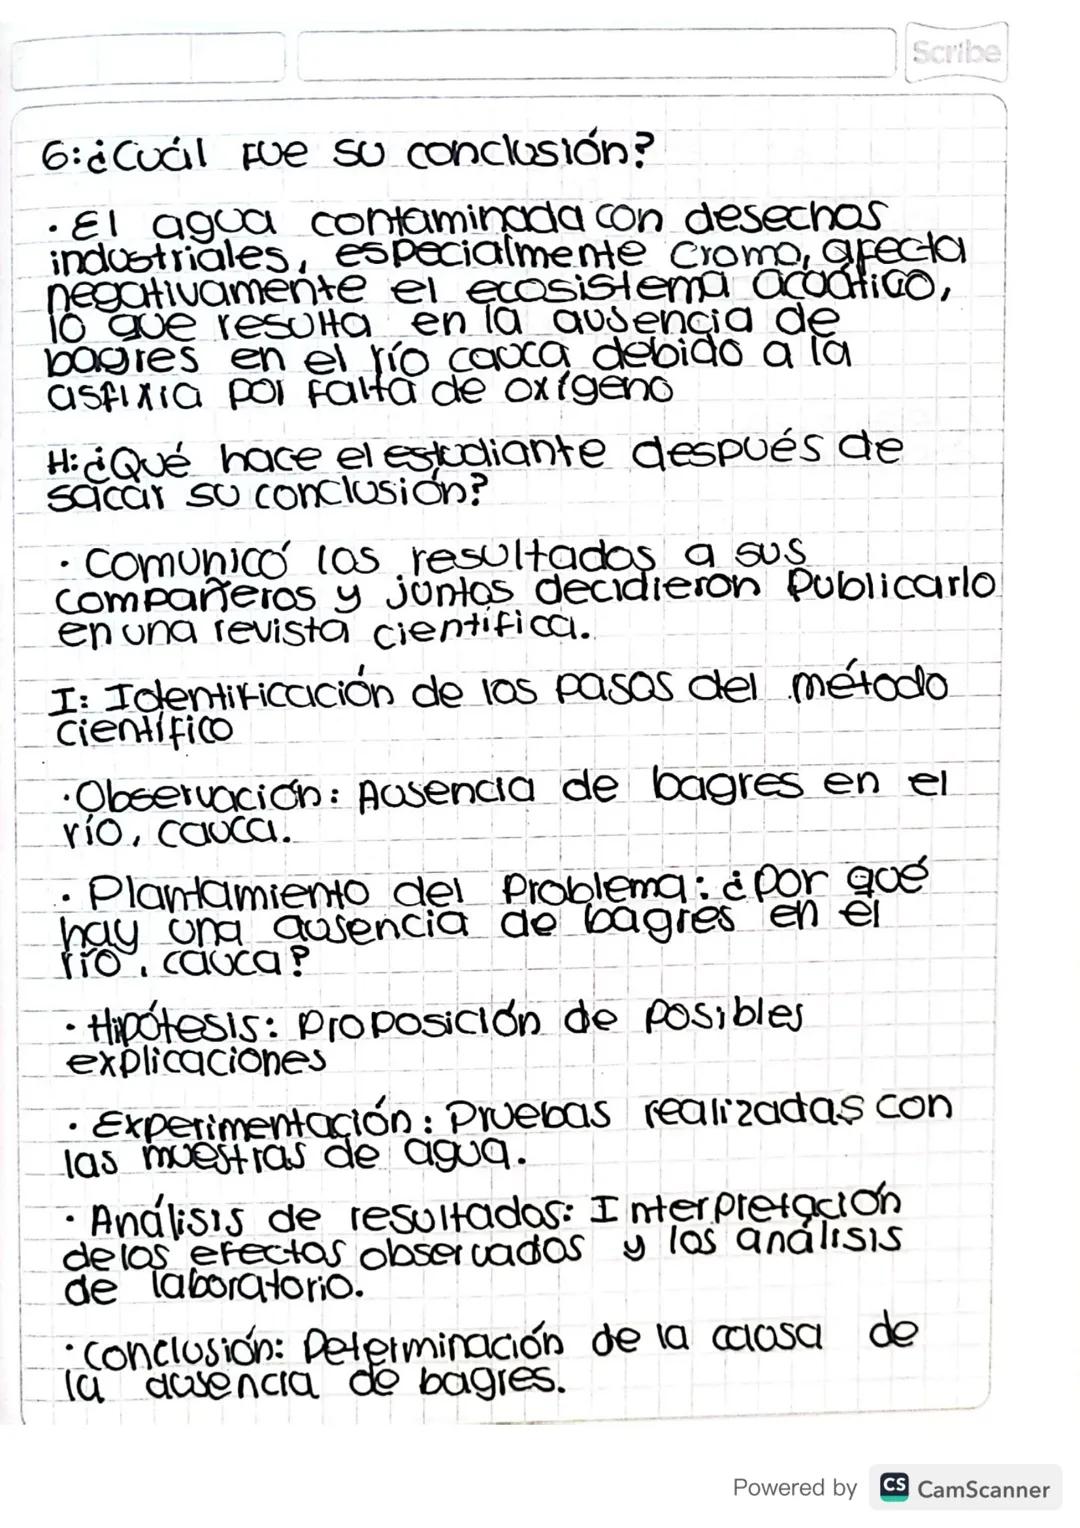 Scribe
6:¿Cuál fue su conclusión?
· El agua contaminada con desechos
industriales, especialmente cromo, afecta
negativamente el ecosistema acoático,
lo que resulta en la ausencia de
bagres en el río cauca debido a la
asfixia por falta de oxígeno
H:¿Qué hace el estudiante después de
sacar su conclusión?
· Comunicó los resultados a sus
compañeros y juntos decidieron publicarlo
en una revista científica.
I: Identificación de los pasos del método
científico
·Observación: Ausencia de bagres en el
río, cauca.
· Plantamiento del Problema: ¿por qué
hay una ausencia de bagres en el
río, cauca?
· Hipótesis: Proposición de posibles
explicaciones
· Experimentación: Pruebas realizadas con
las muestras de agua.
· Análisis de resultados: Interpretación
de los efectos observados y los análisis
de laboratorio.
· conclusión: Determinación de la causa de
la ausencia de bagres.
Powered by CS CamScanner